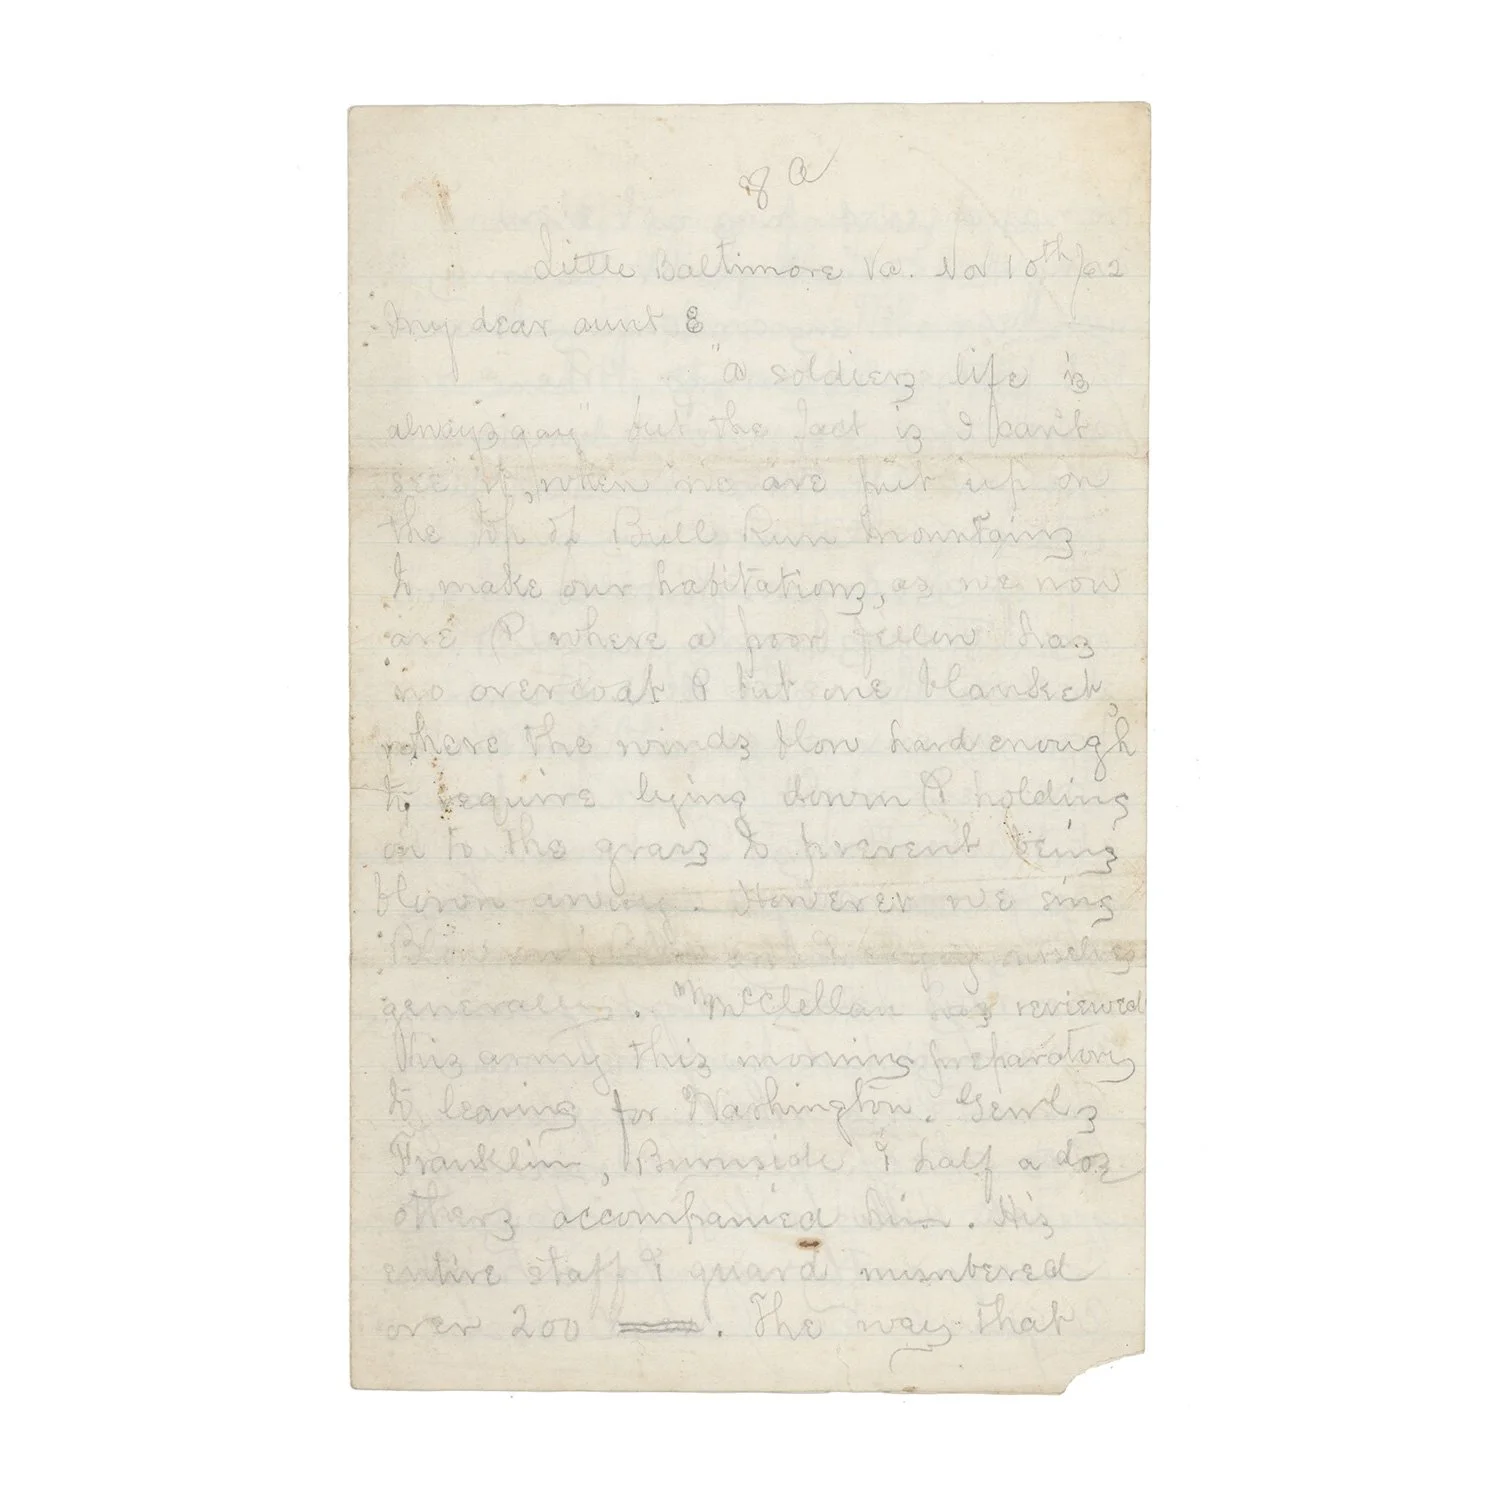 8 a
Little Baltimore Va. Nov 10th/62
My dear aunt E
"a soldiers life is
always gay" but the fact is I can't
see it, when we are put up on
the top of Bull Run Mountains
to make our habitations, as we now
are & where a poor fellow has
no overcoat & but one blanket,
where the winds blow hard enough
to require lying down & holding
on to the grass to prevent being
blown away. However we sing
Blow ourselves
generally. McClellan has reviewed
this army this morning preparatory
to leaving for Washington. Genls
Franklin, Burnside & half a doz
others accompanied him. His
entire staff & guard numbered
over 200 . The way that